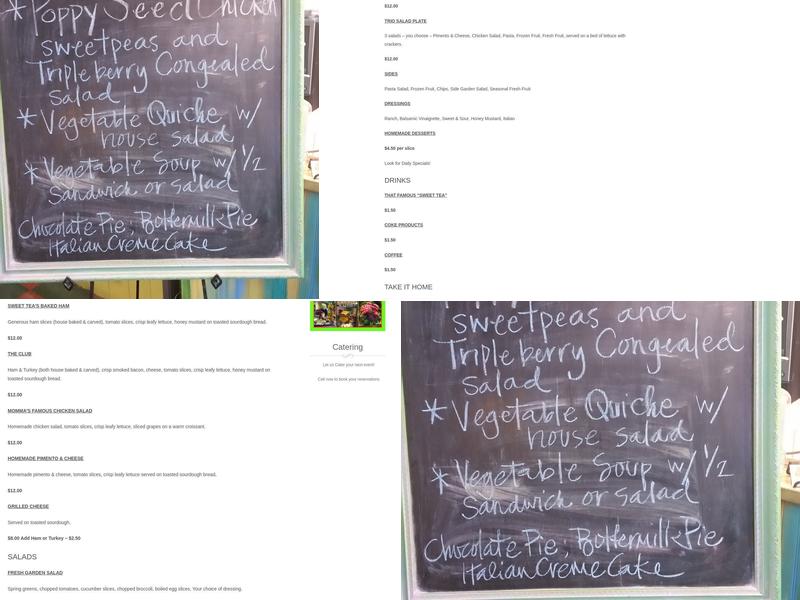 * Poppy Seed Chicken
sweetpeas and
Tripleberry Congealed
Salad
* Vegetable Quiche w/
house salad
* Vegetable Soup w/ 1/2
Sandwich or salad
Chocolate Pie, Buttermilk Pie
Italian Creme Cake
$12.00
TRIO SALAD PLATE
3 salads – you choose – Pimento & Cheese, Chicken Salad, Pasta, Frozen Fruit, Fresh Fruit, served on a bed of lettuce with
crackers.
$12.00
SIDES
Pasta Salad, Frozen Fruit, Chips, Side Garden Salad, Seasonal Fresh Fruit
DRESSINGS
Ranch, Balsamic Vinaigrette, Sweet & Sour, Honey Mustard, Italian
HOMEMADE DESSERTS
$4.50 per slice
Look for Daily Specials!
DRINKS
THAT FAMOUS "SWEET TEA"
$1.50
COKE PRODUCTS
$1.50
COFFEE
$1.50
TAKE IT HOME
SWEET TEA'S BAKED HAM
Generous ham slices (house baked & carved), tomato slices, crisp leafy lettuce, honey mustard on toasted sourdough bread.
$12.00
THE CLUB
Ham & Turkey (both house baked & carved), crisp smoked bacon, cheese, tomato slices, crisp leafy lettuce, honey mustard on
toasted sourdough bread.
$12.00
MOMMA'S FAMOUS CHICKEN SALAD
Homemade chicken salad, tomato slices, crisp leafy lettuce, sliced grapes on a warm croissant.
$12.00
HOMEMADE PIMENTO & CHEESE
Homemade pimento & cheese, tomato slices, crisp leafy lettuce served on toasted sourdough bread.
$12.00
GRILLED CHEESE
Served on toasted sourdough.
$8.00 Add Ham or Turkey ~ $2.50
SALADS
FRESH GARDEN SALAD
Spring greens, chopped tomatoes, cucumber slices, chopped broccoli, boiled egg slices. Your choice of dressing.
Catering
Let us Cater your next event!
Call now to book your reservations
sweetpeas and
Tripleberry Congealed
Salad
* Vegetable Quiche w/
house salad
* Vegetable Soup w/ 1/2
Sandwich or salad
Chocolate Pie, Buttermilk Pie
Italian Creme Cake